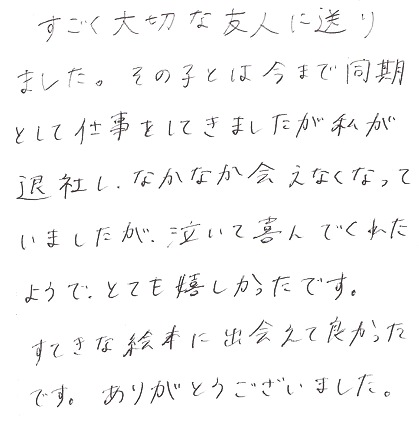 すごく大切な友人に送り
ました。その子とは今まで同期
として仕事をしてきましたが私が
退社し、なかなか会えなくなって
いましたが、泣いて喜んでくれた
ようで、とても嬉しかったです。
すてきな絵本に出会えて良かった
です。ありがとうございました。